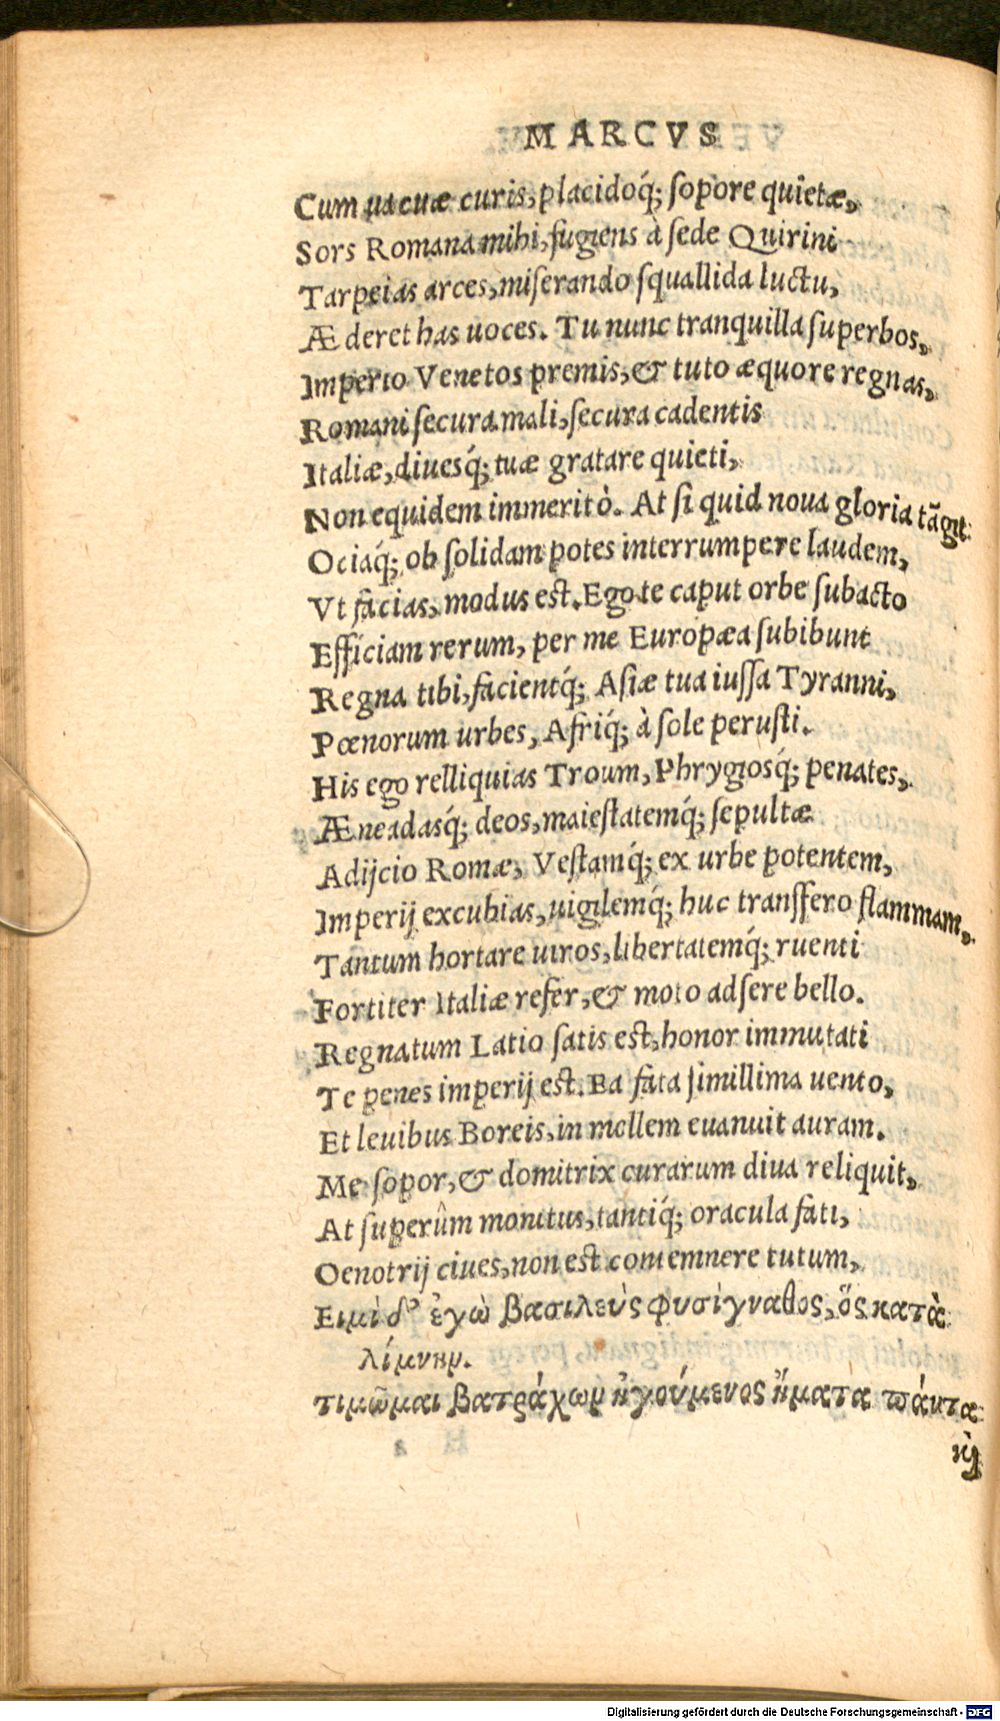 MARCVS
Cum uacuæ curis, placidoq́; sopore quietæ,
Sors Romana mihi, fugiens à sede Quirini
Tarpeias arces, miserando squallida luctu,
Æderet has uoces. Tu nunc tranquilla superbos,
Imperio Venetos premis, & tuto æquore regnas,
Romani secura mali, secura cadentis
Italiæ, diuesq́; tuæ gratare quieti,
Non equidem immeritò. At si quid noua gloria tāgit
Ociaq́; ob solidam potes interrumpere laudem,
Vt facias, modus est. Ego te caput orbe subacto
Efficiam rerum, per me Europæa subibunt
Regna tibi, facientq́; Asiæ tua iussa Tyranni,
Pœnorum urbes, Afriq́; à sole perusti.
His ego relliquias Troum, Phrygiosq́; penates,
Æneadasq́; deos, maiestatemq́; sepultæ
Adijcio Romæ, Vestamq́; ex urbe potentem,
Imperij excubias, uigilemq́; huc transfero flammam,
Tantum hortare uiros, libertatemq́; ruenti
Fortiter Italiæ refer, & moto adsere bello.
Regnatum Latio satis est, honor immutati
Te penes imperij est. Ea fata simillima uento,
Et leuibus Boreis, in mollem euanuit auram.
Me sopor, & domitrix curarum diua reliquit,
At superûm monitus, tantiq́; oracula fati,
Oenotrij ciues, non est contemnere tutum,
Εἰμὶ δ' ἐγὼ βασιλεὺς φυσίγναθος, ὅς κατὰ
λίμνην.
τιμῶμαι βατράχων ἡγούμενος ἤματα πάντα
Digitalisierung gefördert durch die Deutsche Forschungsgemeinschaft - DFG